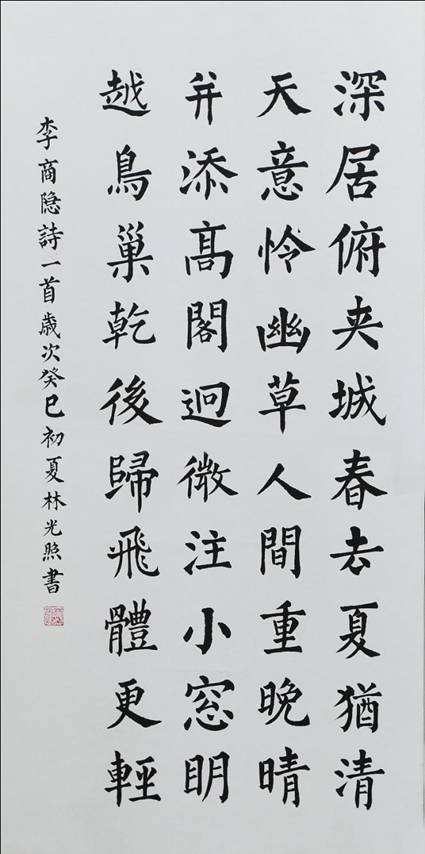 深居俯夹城春去夏猶清
天意怜幽草人間重晚晴
并添高閣迥微注小窓明
越鳥巢乾後歸飛體更輕
李商隐詩一首歲次癸巳初夏林光照書